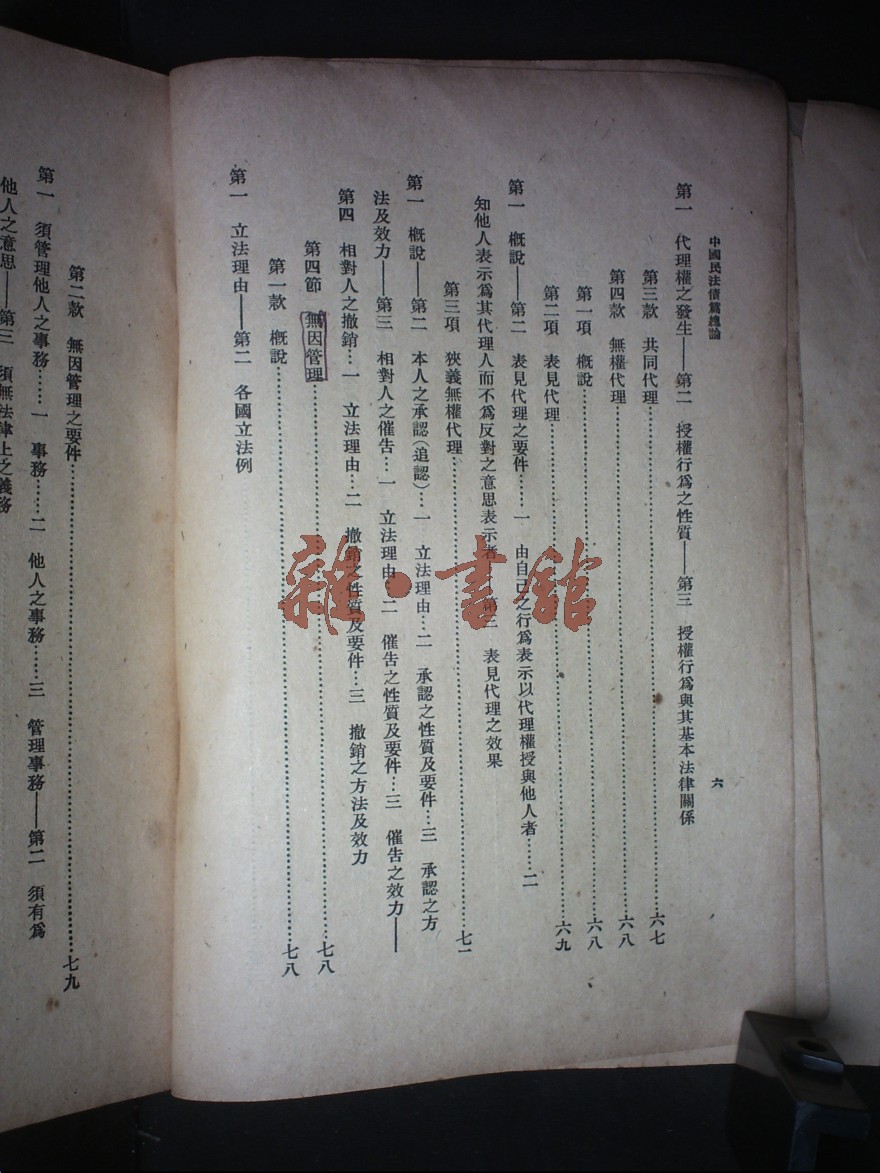 中國民法債篇總論
六
第一　代理權之發生——第二　授權行爲之性質——第三　授權行爲與其基本法律關係
第三款　共同代理……六七
第四款　無權代理……六八
第一項　概說……六八
第二項　表見代理……六九
第一　概說——第二　表見代理之要件……一　由自己之行爲表示以代理權授與他人者……二
知他人表示爲其代理人而不爲反對之意思表示者——第三　表見代理之效果
第三項　狹義無權代理……七一
第一　概說——第二　本人之承認(追認)…一　立法理由…二　承認之性質及要件…三　承認之方
法及效力——第三　相對人之催告…一　立法理由…二　催告之性質及要件…三　催告之效力——
第四　相對人之撤銷…一　立法理由…二　撤銷之性質及要件…三　撤銷之方法及效力
第四節　無因管理……七八
第一款　概說……七八
第一　立法理由——第二　各國立法例
第二款　無因管理之要件……七九
第一　須管理他人之事務……一　事務……二　他人之事務……三　管理事務——第二　須有爲
他人之意思——第三　須無法律上之義務
雜·書館